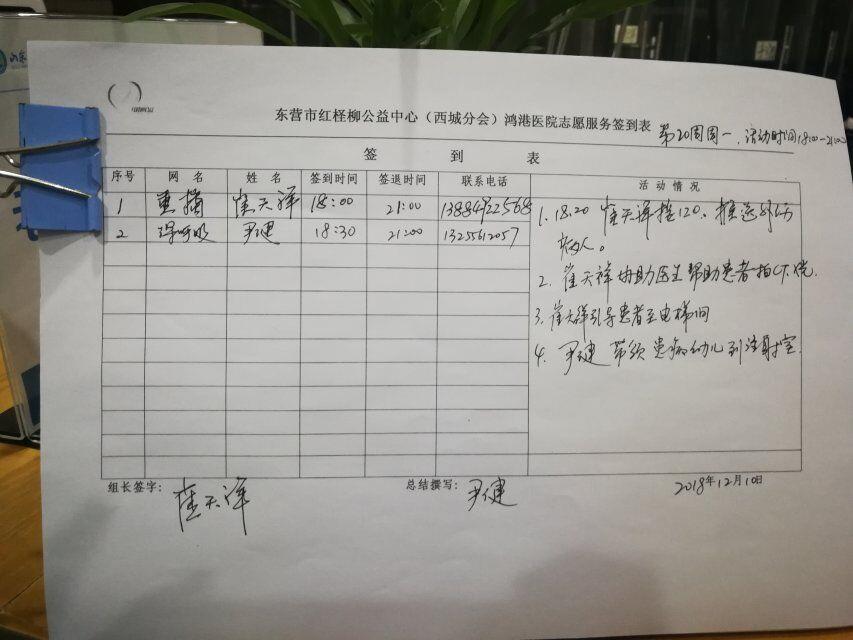 东营市红柽柳公益中心（西城分会）鸿港医院志愿服务签到表
第20周周一，活动时间18:00-21:00
签 到 表
序号 网 名 姓 名 签到时间 签退时间 联系电话 活 动 情 况
1 崔天祥 18:00 21:00 13884922568
2 深呼吸 尹健 18:30 21:00 13255612057
1. 18:20 崔天祥接120、推送
病人。
2. 崔天祥协助医生帮助患者拍CT
3. 崔天祥引导患者至电梯间
4. 尹健带领患病幼儿到注射室.
组长签字： 崔天祥 总结撰写： 尹健 2018年12月10日